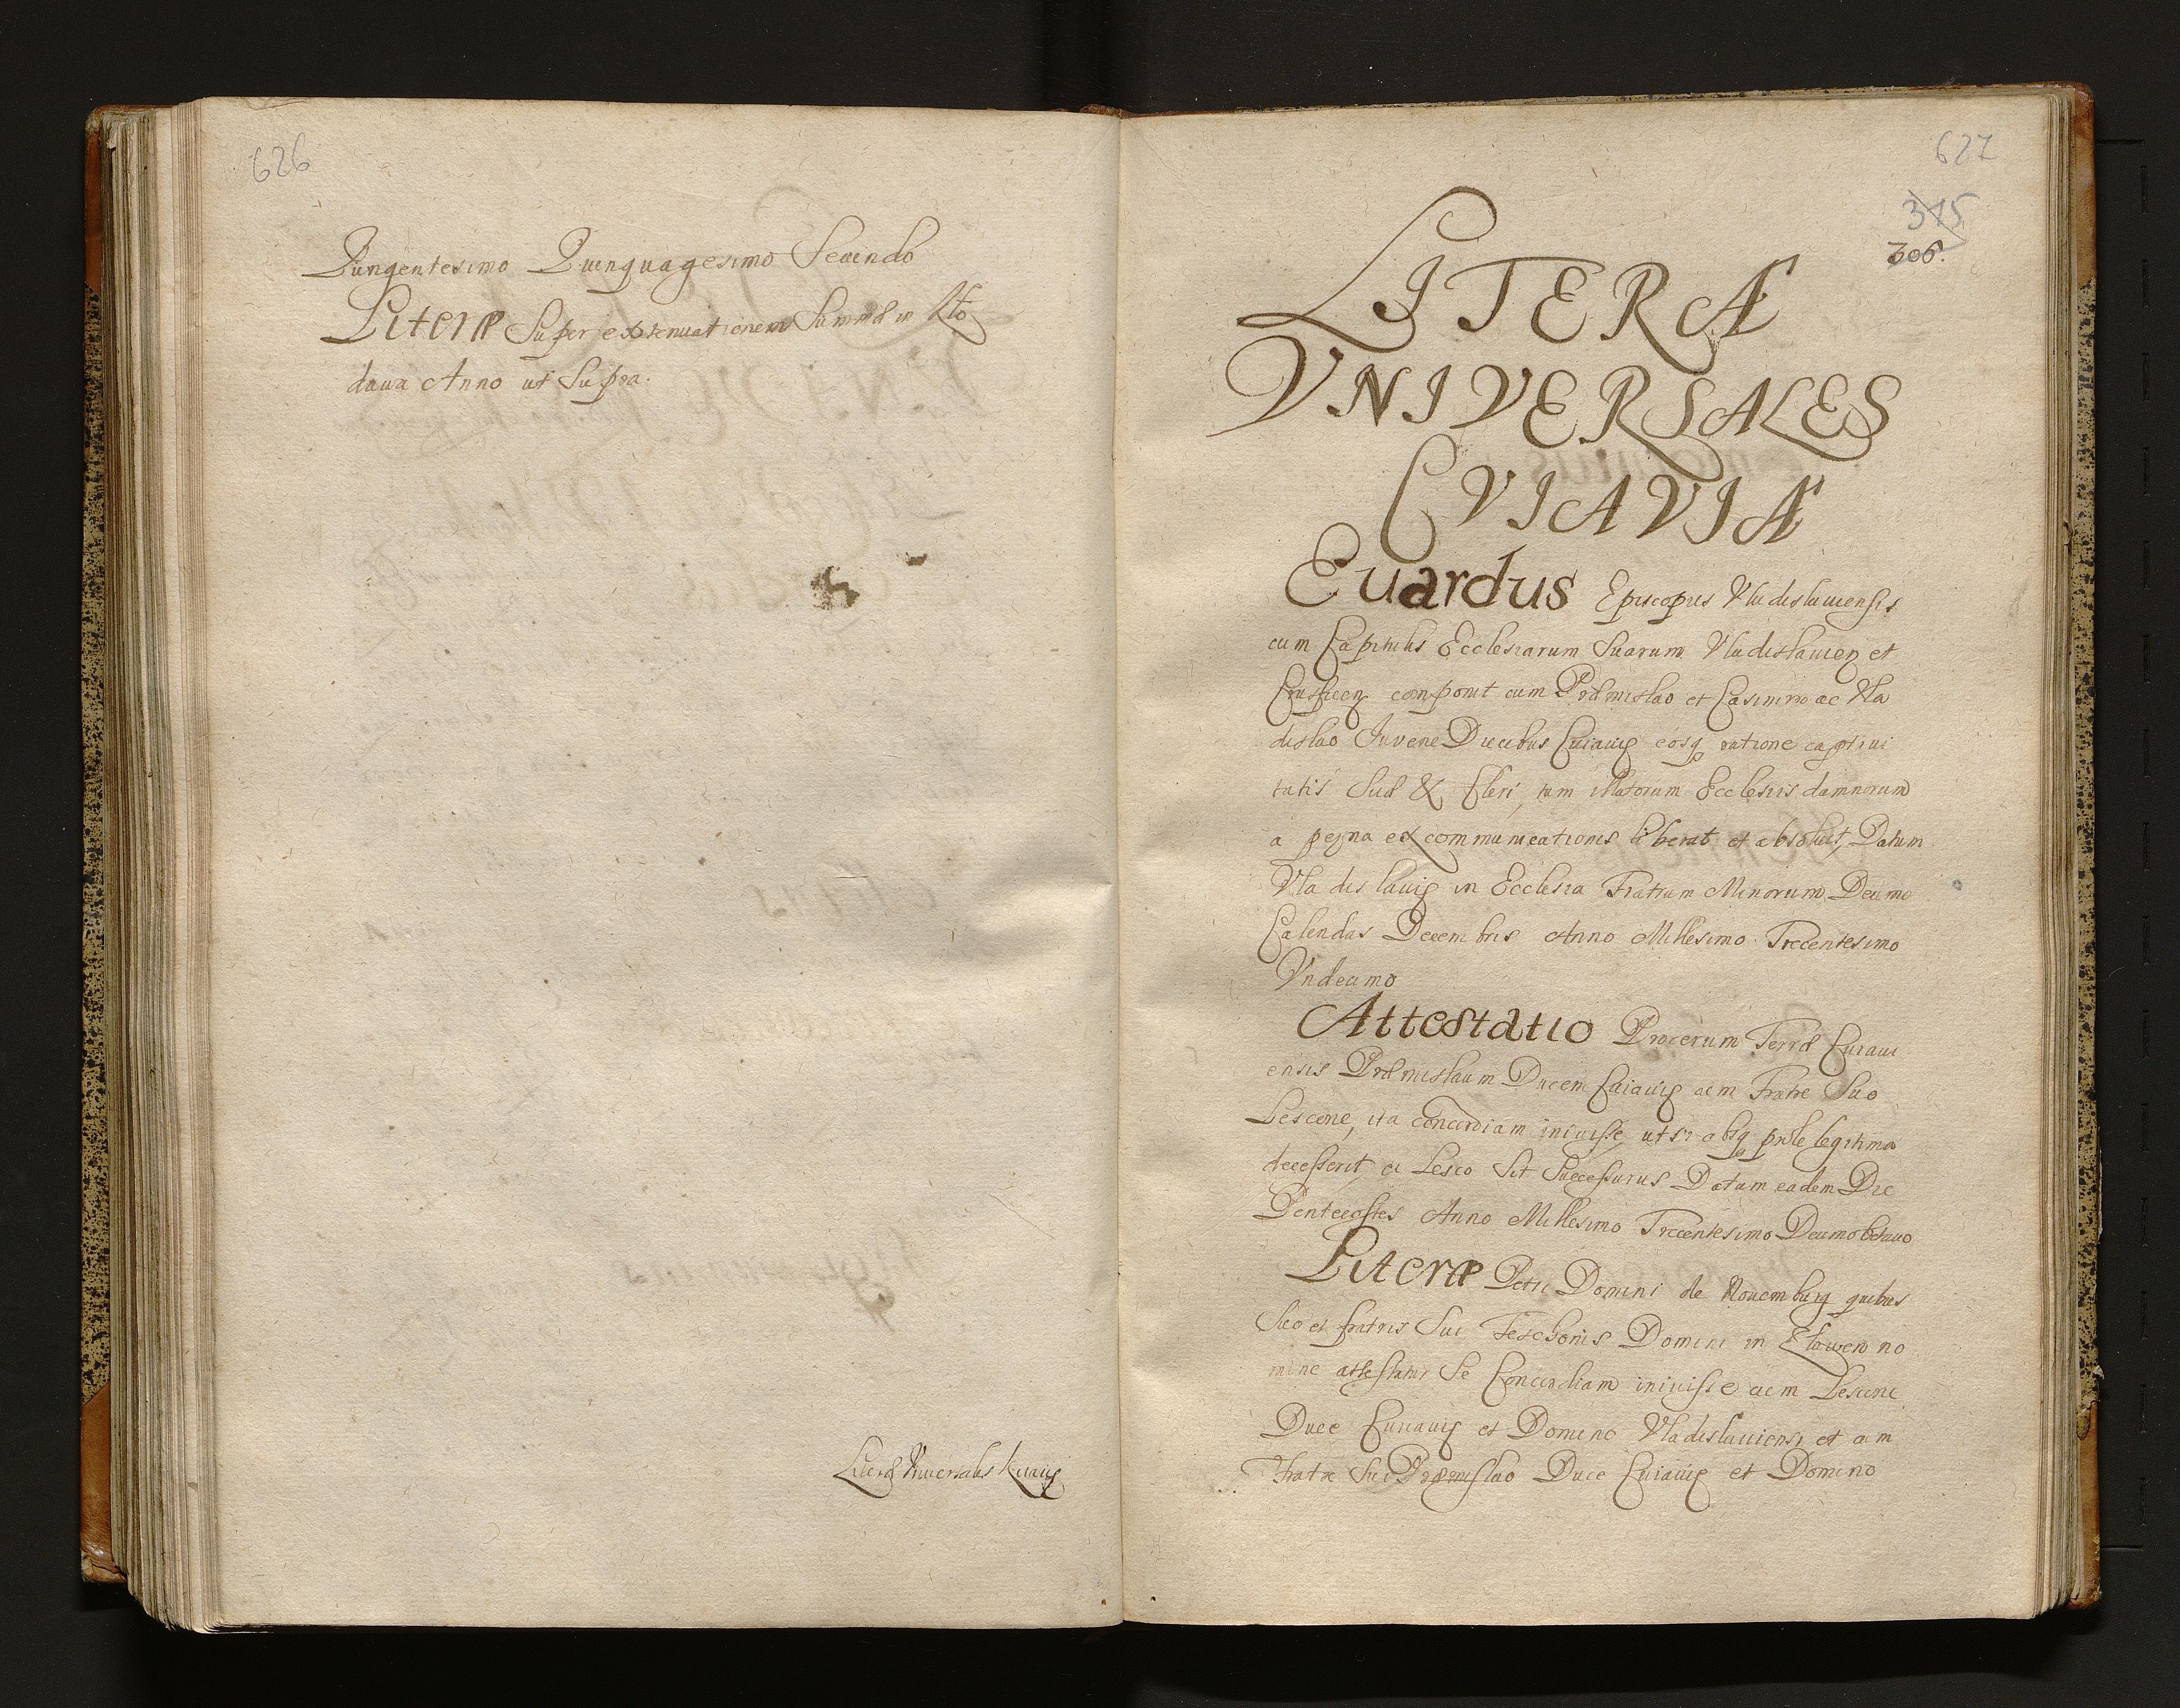 626
Quingentesimo Quinquagesimo Secundo
Literæ Super extenuationem Summæ in Kło
dawa Anno ut Supra.
Literæ Vniuersales Kuiauię
627
315
306.
LITERÆ
VNIVERSALES
CVIAVIÆ
Euardus Episcopus Vladislauiensis
cum Capitulis Ecclesiarum Suarum Vladislauien et
Crusuicen componit cum Præmislao et Casimiro ac Vla
dislao Juvene Ducibus Cuiauię eosq ratione captiui
tatis Suæ & Cleri, tum illatorum Ecclesiis damnorum
a pęna excommunicationis liberat et absoluit, Datum
Vladislauię in Ecclesia Fratrum Minorum Decimo
Calendas Decembris Anno Millesimo Trecentesimo
Vndecimo
Attestatio Procerum Terræ Cuiaui
ensis Præmislaum Ducem Cuiauię cum Fratre Suo
Lescone, ita concordiam iniuisse, ut si absq prole legitima
decesserit, ei Lesco Sit Successurus Datum eadem Die
Pentecostes Anno Millesimo Trecentesimo Decimo Octauo
Literæ Petri Domini de Nouemburg quibus
Suo et fratris Sui Jeschonis Domini in Slawen no
mine attestatur Se Concordiam iniuisse cum Lescone
Duce Cuiauię et Domino Vladislauiensi et cum
Fratre Sui Præmislao Duce Cuiauię et Domino